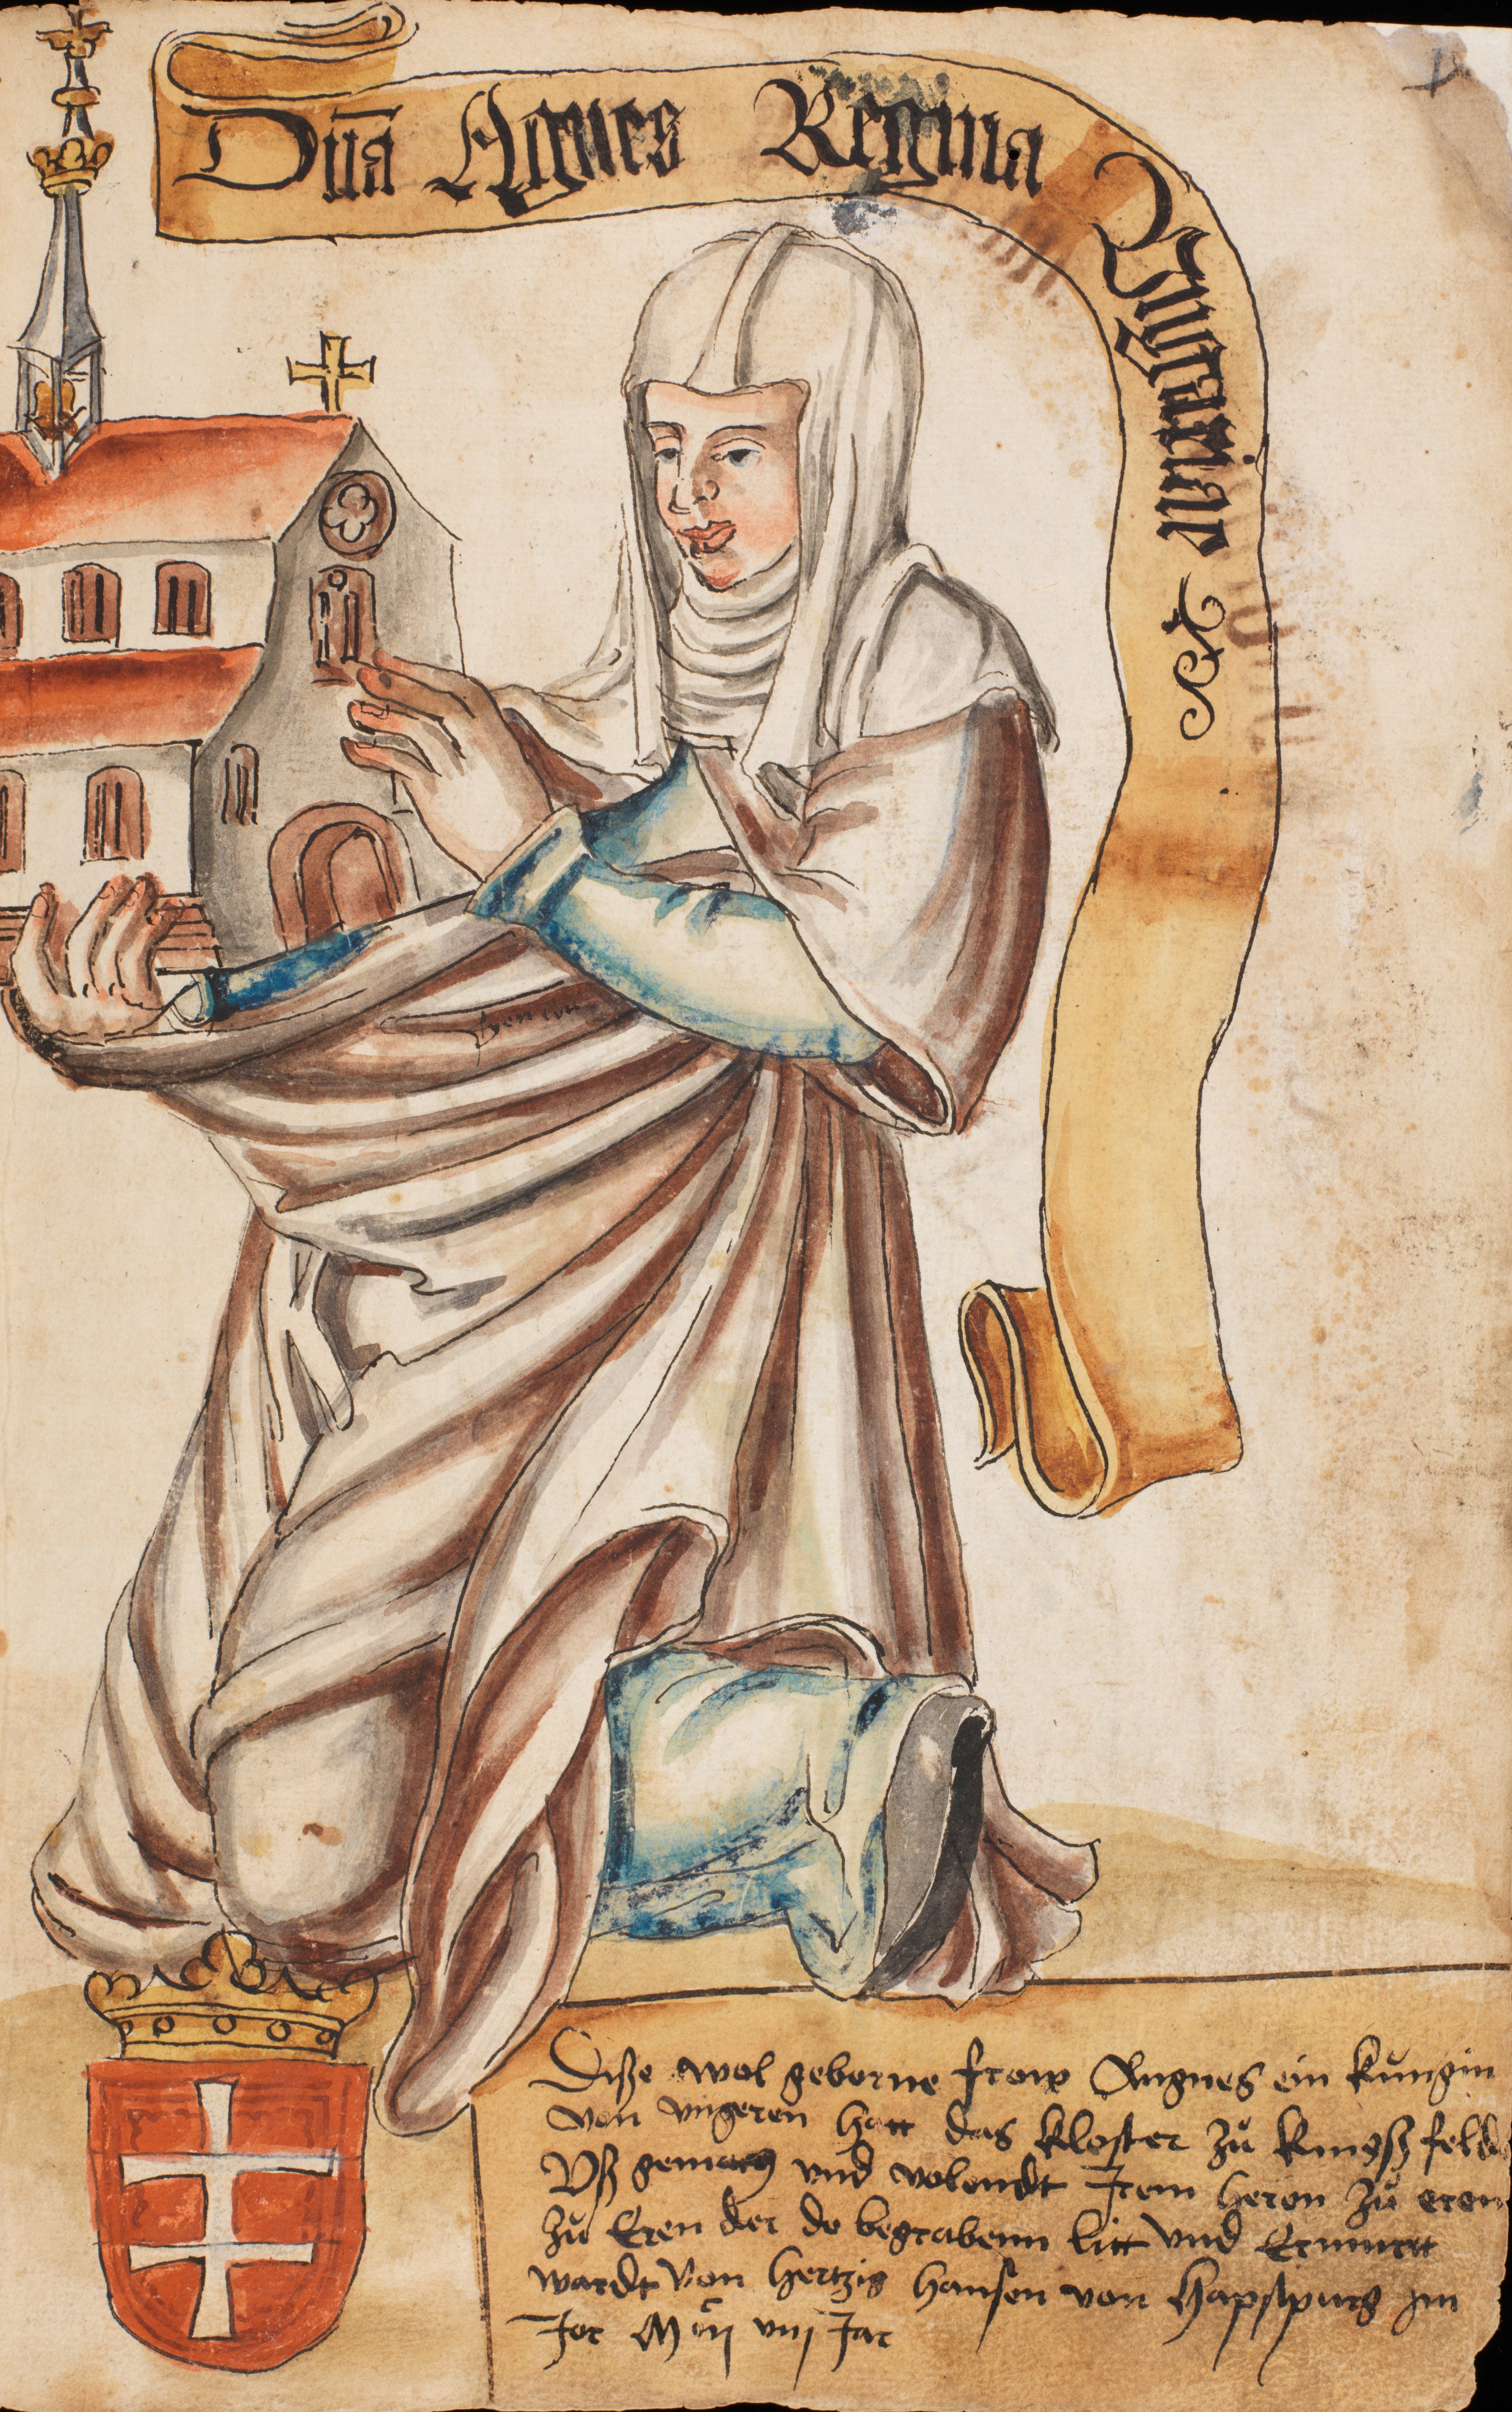 Dn̄a Agnes Regina Vngariae etc
Dise wol geborne frow Angnes ein kúngin
von vngeren hatt das kloster zů kúngß feld
Vß gemacht und volendt Irem heren zů eren
zů Eren der do begrabenn litt vnd Ermurtt
wardt von hertzig hansen von hapspurg im
Jor viij Jar